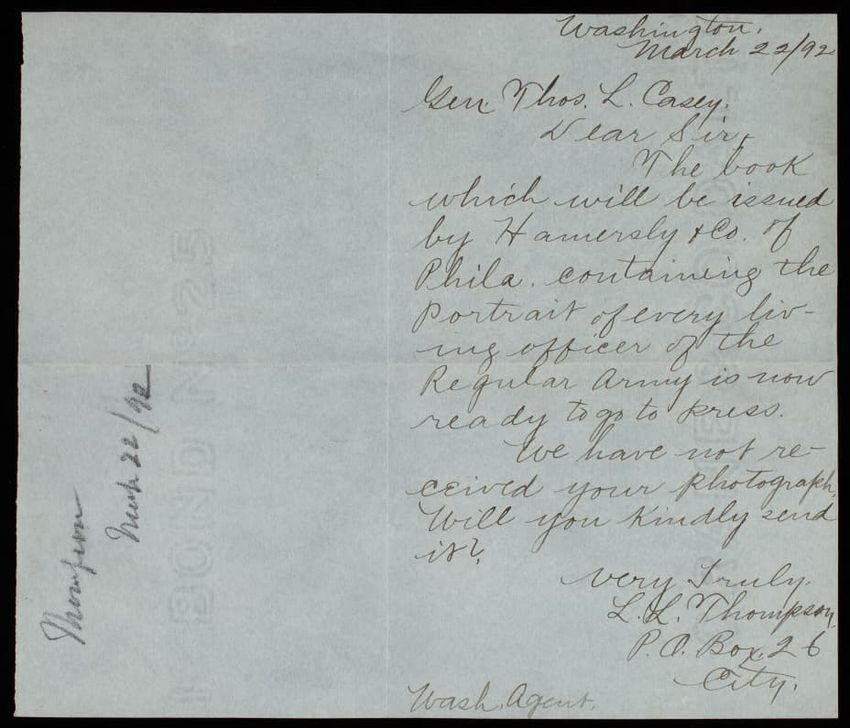 Washington.
March 22/92
Gen. Thos. L. Casey.
Dear Sir,
The book
which will be issued
by Hamersly & Co. of
Phila. containing the
Portrait of every liv-
ing officer of the
Regular Army is now
ready to go to press.
We have not re-
ceived your photograph.
Will you kindly send
it?
Very Truly.
L. L. Thompson
P.O. Box. 26
City.
Wash. Agent.
Thompson
Mch 22/92
BOND No 25